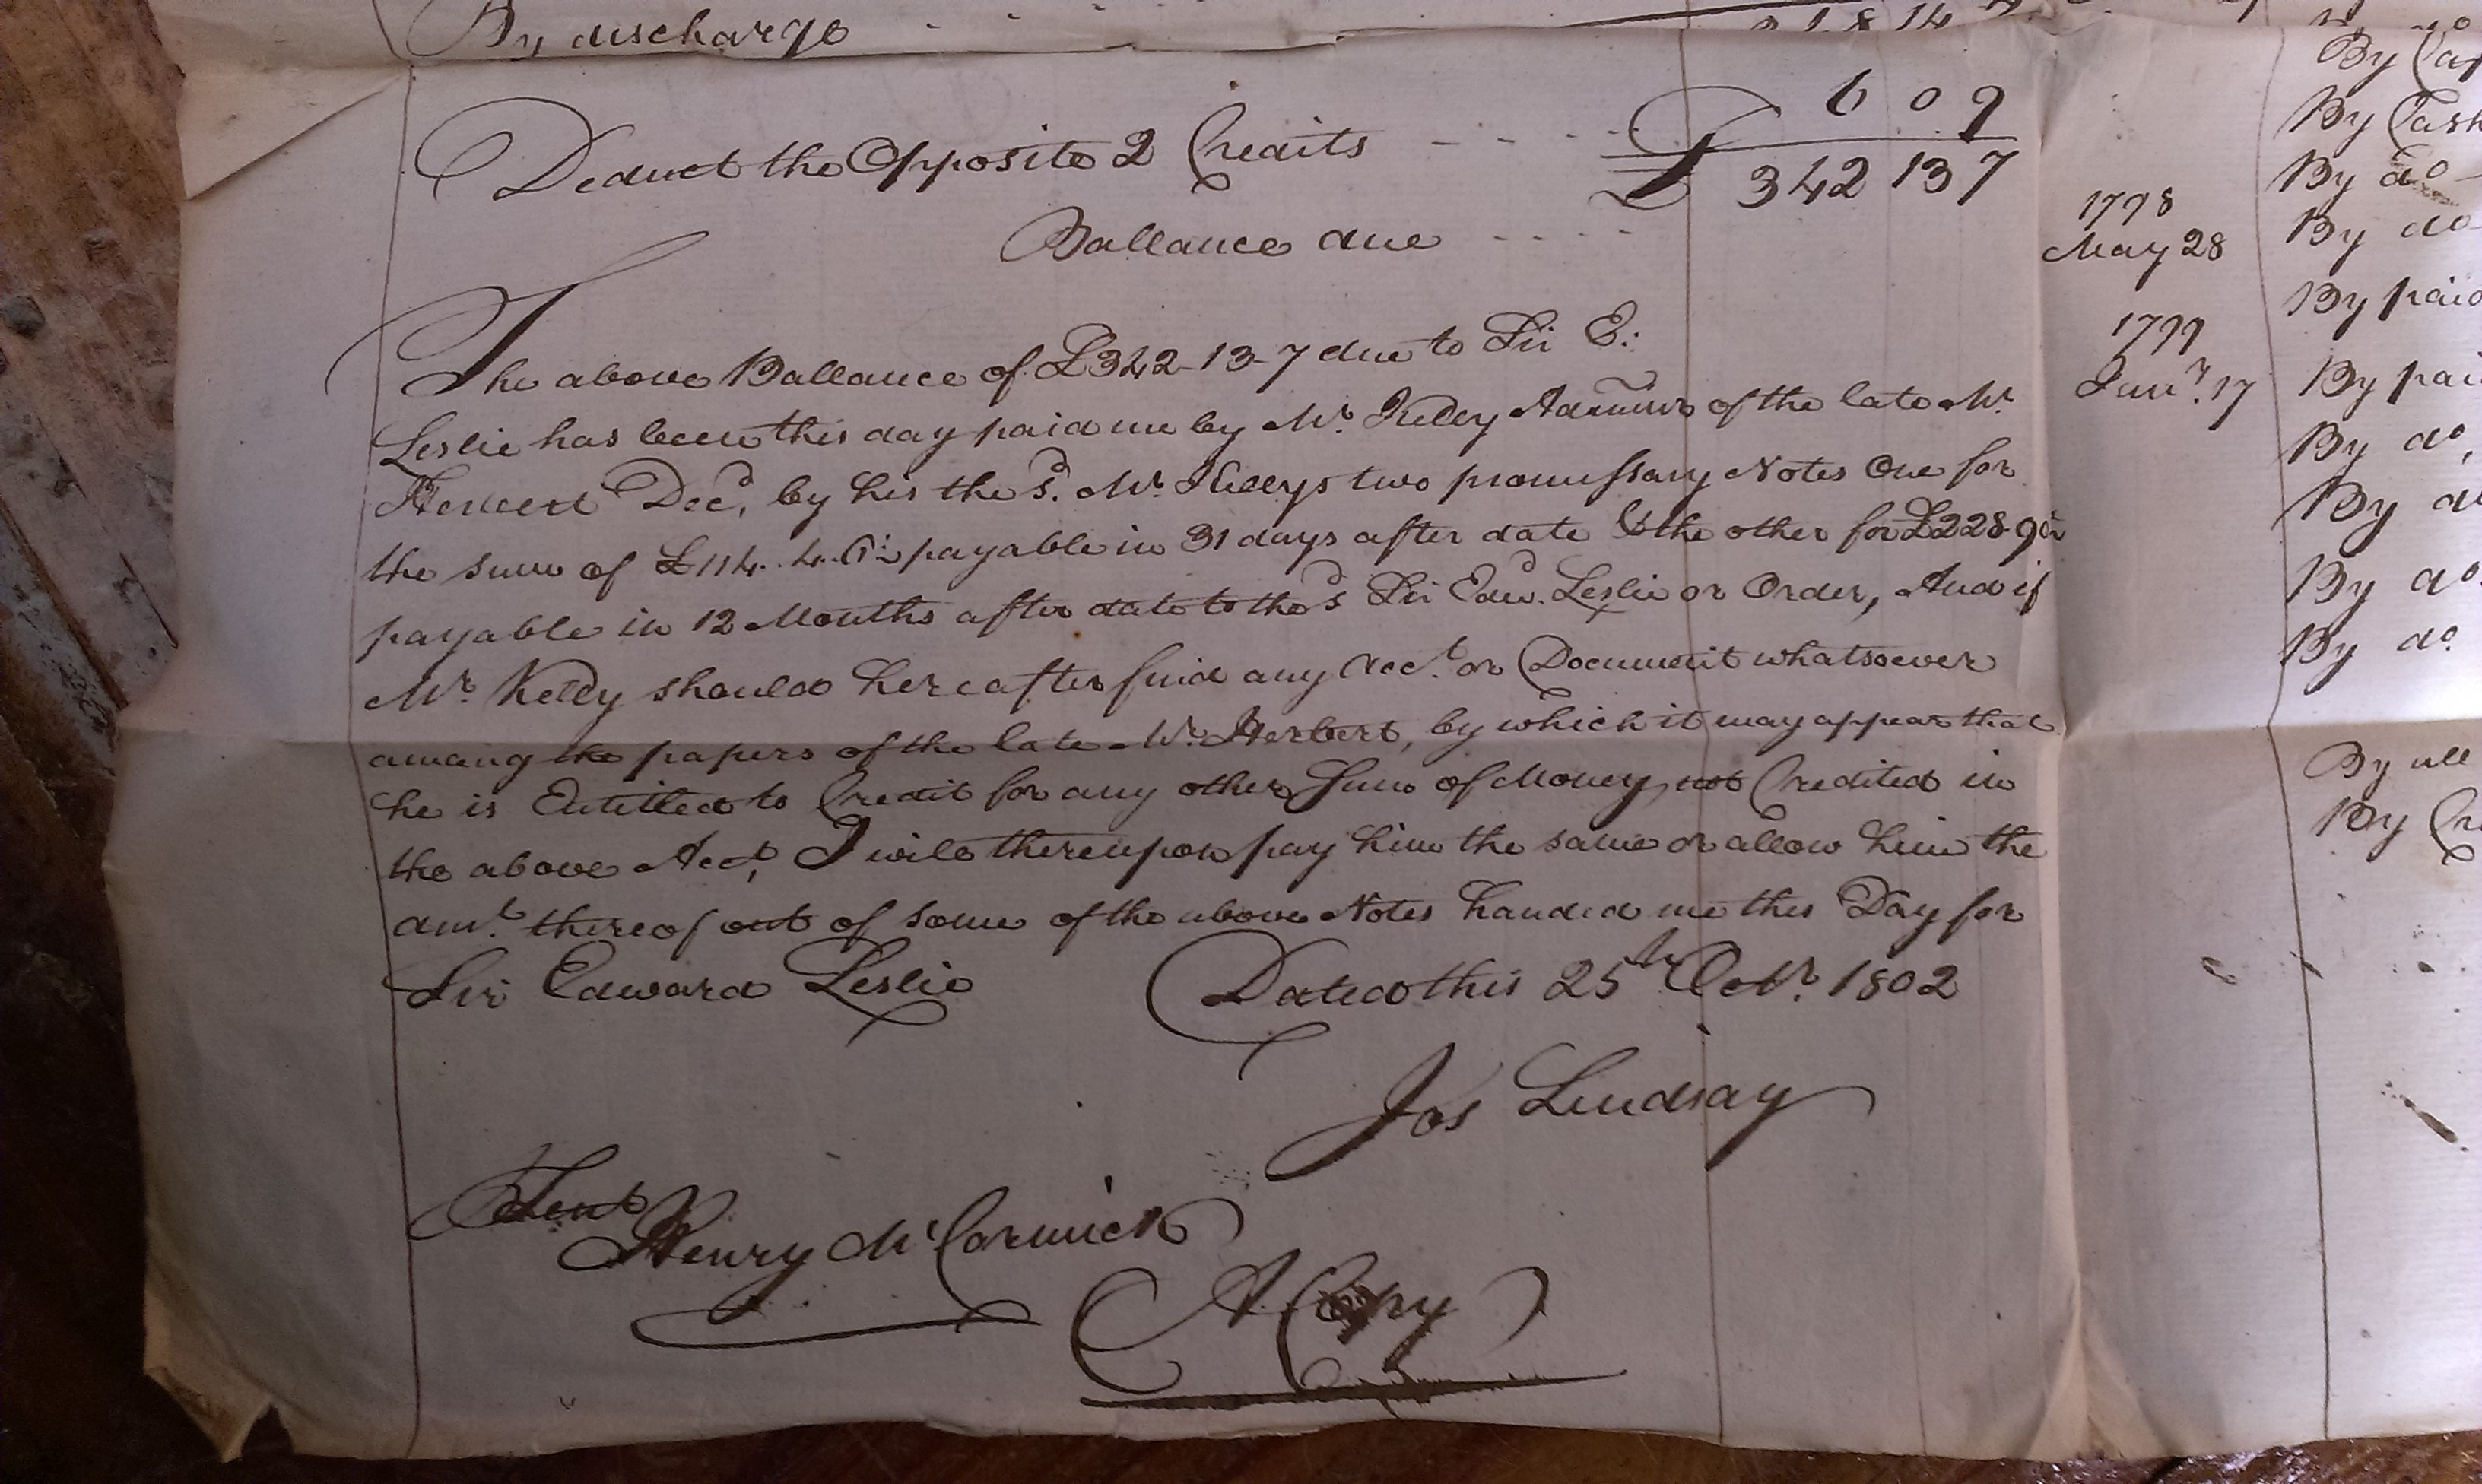 By discharge
Deduct the Opposite 2 Credits 6 0 9
Ballance due £ 342 13 7
The above Ballance of £342-13-7 due to Sir E:
Leslie has been this day paid me by Mr. Kelly Admr of the late Mr
Herbert Decd. by his the sd. Mr. Kellys two promissary Notes One for
the sum of £114..4..6 payable in 31 days after date & the other for £228.9
payable in 12 Months after date to the sd Sir Edwd. Leslie or Order, And if
Mr. Kelly should hereafter find any Acct. or Document whatsoever
among the papers of the late Mr. Herbert, by which it may appear that
he is Entitled to Credit for any other Sum of Money not Credited in
the above Acct, I will thereupon pay him the same or allow him the
amt. thereof out of some of the above Notes handed me this Day for
Sir Edward Leslie Dated this 25th Octr. 1802
Jos Lindsay
Henry McCormick
A Copy
1798
May 28
1799
Jany. 17
By Cash
By do
By do
By paid
By do,
By do
By do.